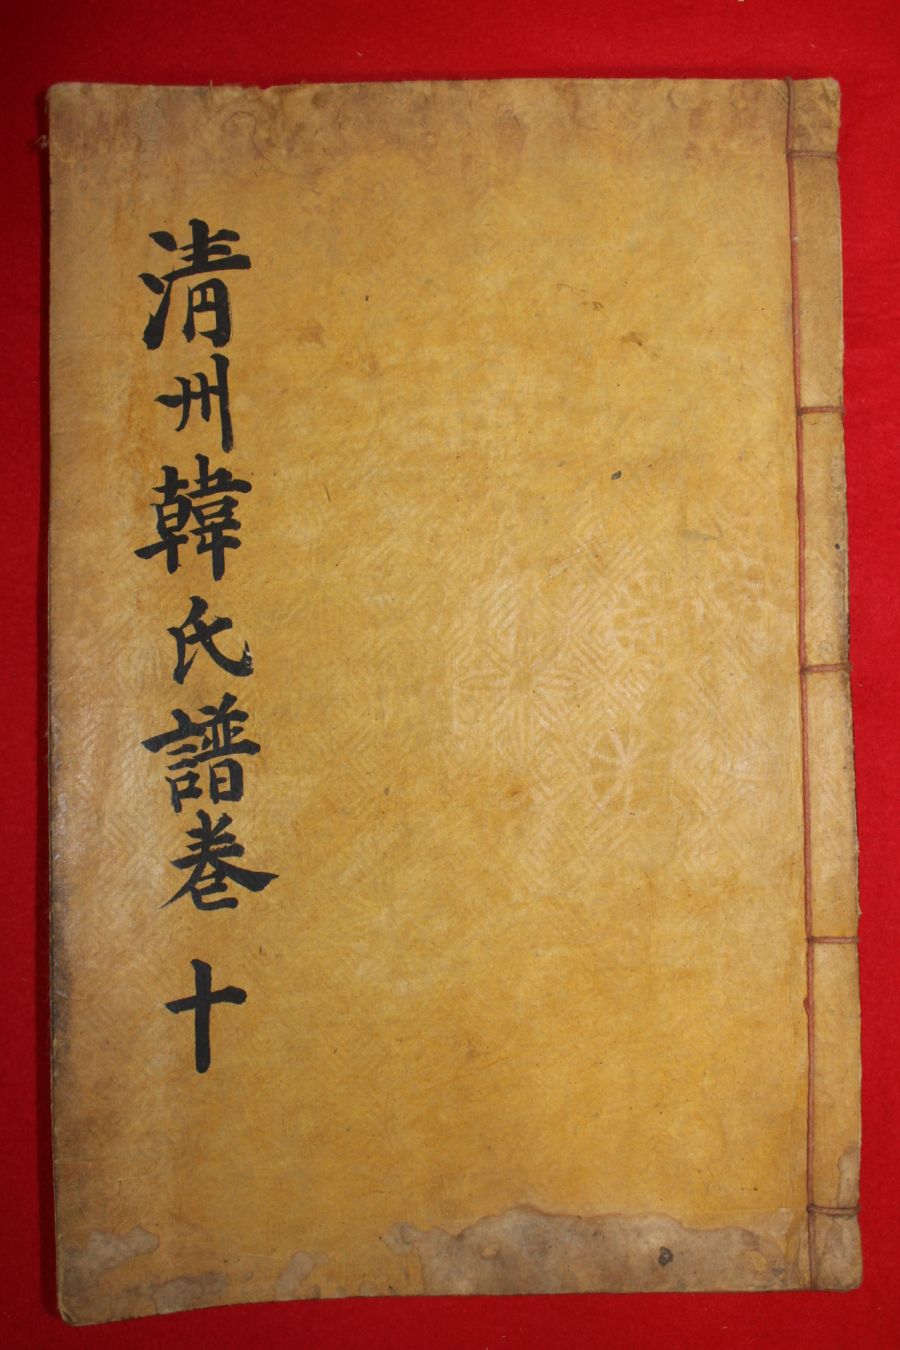 清州韓氏譜卷十